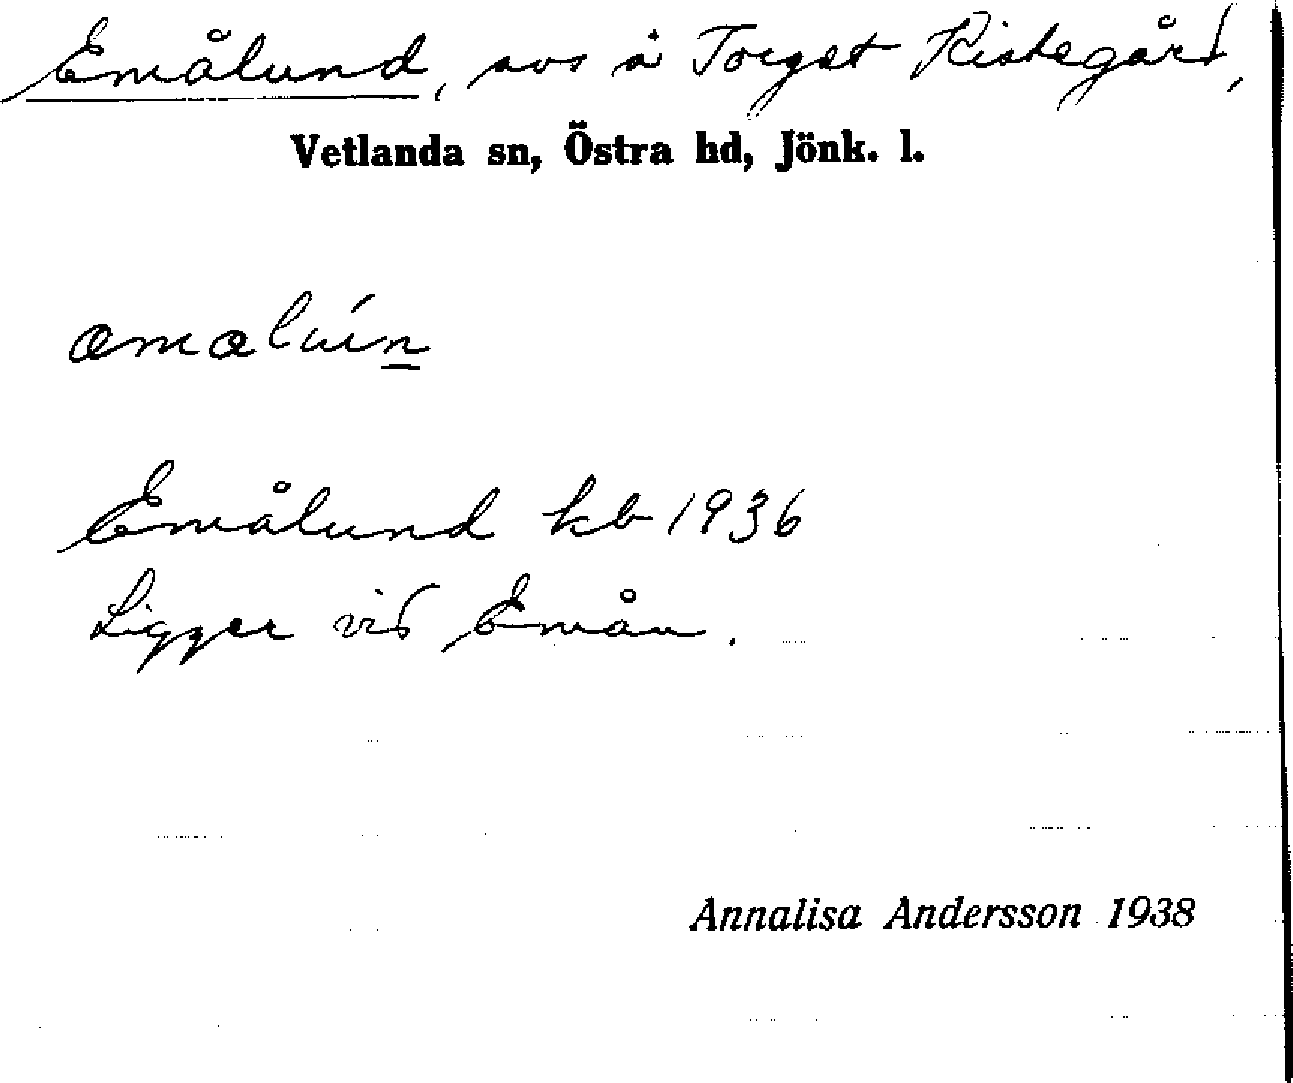 Emålund, avs å Torget Kistegård,
Vetlanda sn, Östra hd, Jönk. l.
Emålund kb 1936
Ligger vid Emån.
Annalisa Andersson 1938